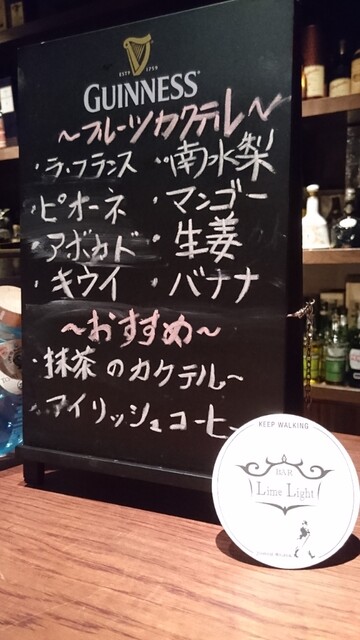 ESTD 1759
GUINNESS
~フルーツカクテル~
・ラ・フランス ・南水梨
・ピオーネ ・マンゴー
・アボカド ・生姜
・キウイ ・バナナ
~おすすめ~
・抹茶のカクテル~
・アイリッシュコーヒー
KEEP WALKING
BAR
Lime Light
JOHNNIE WALKER